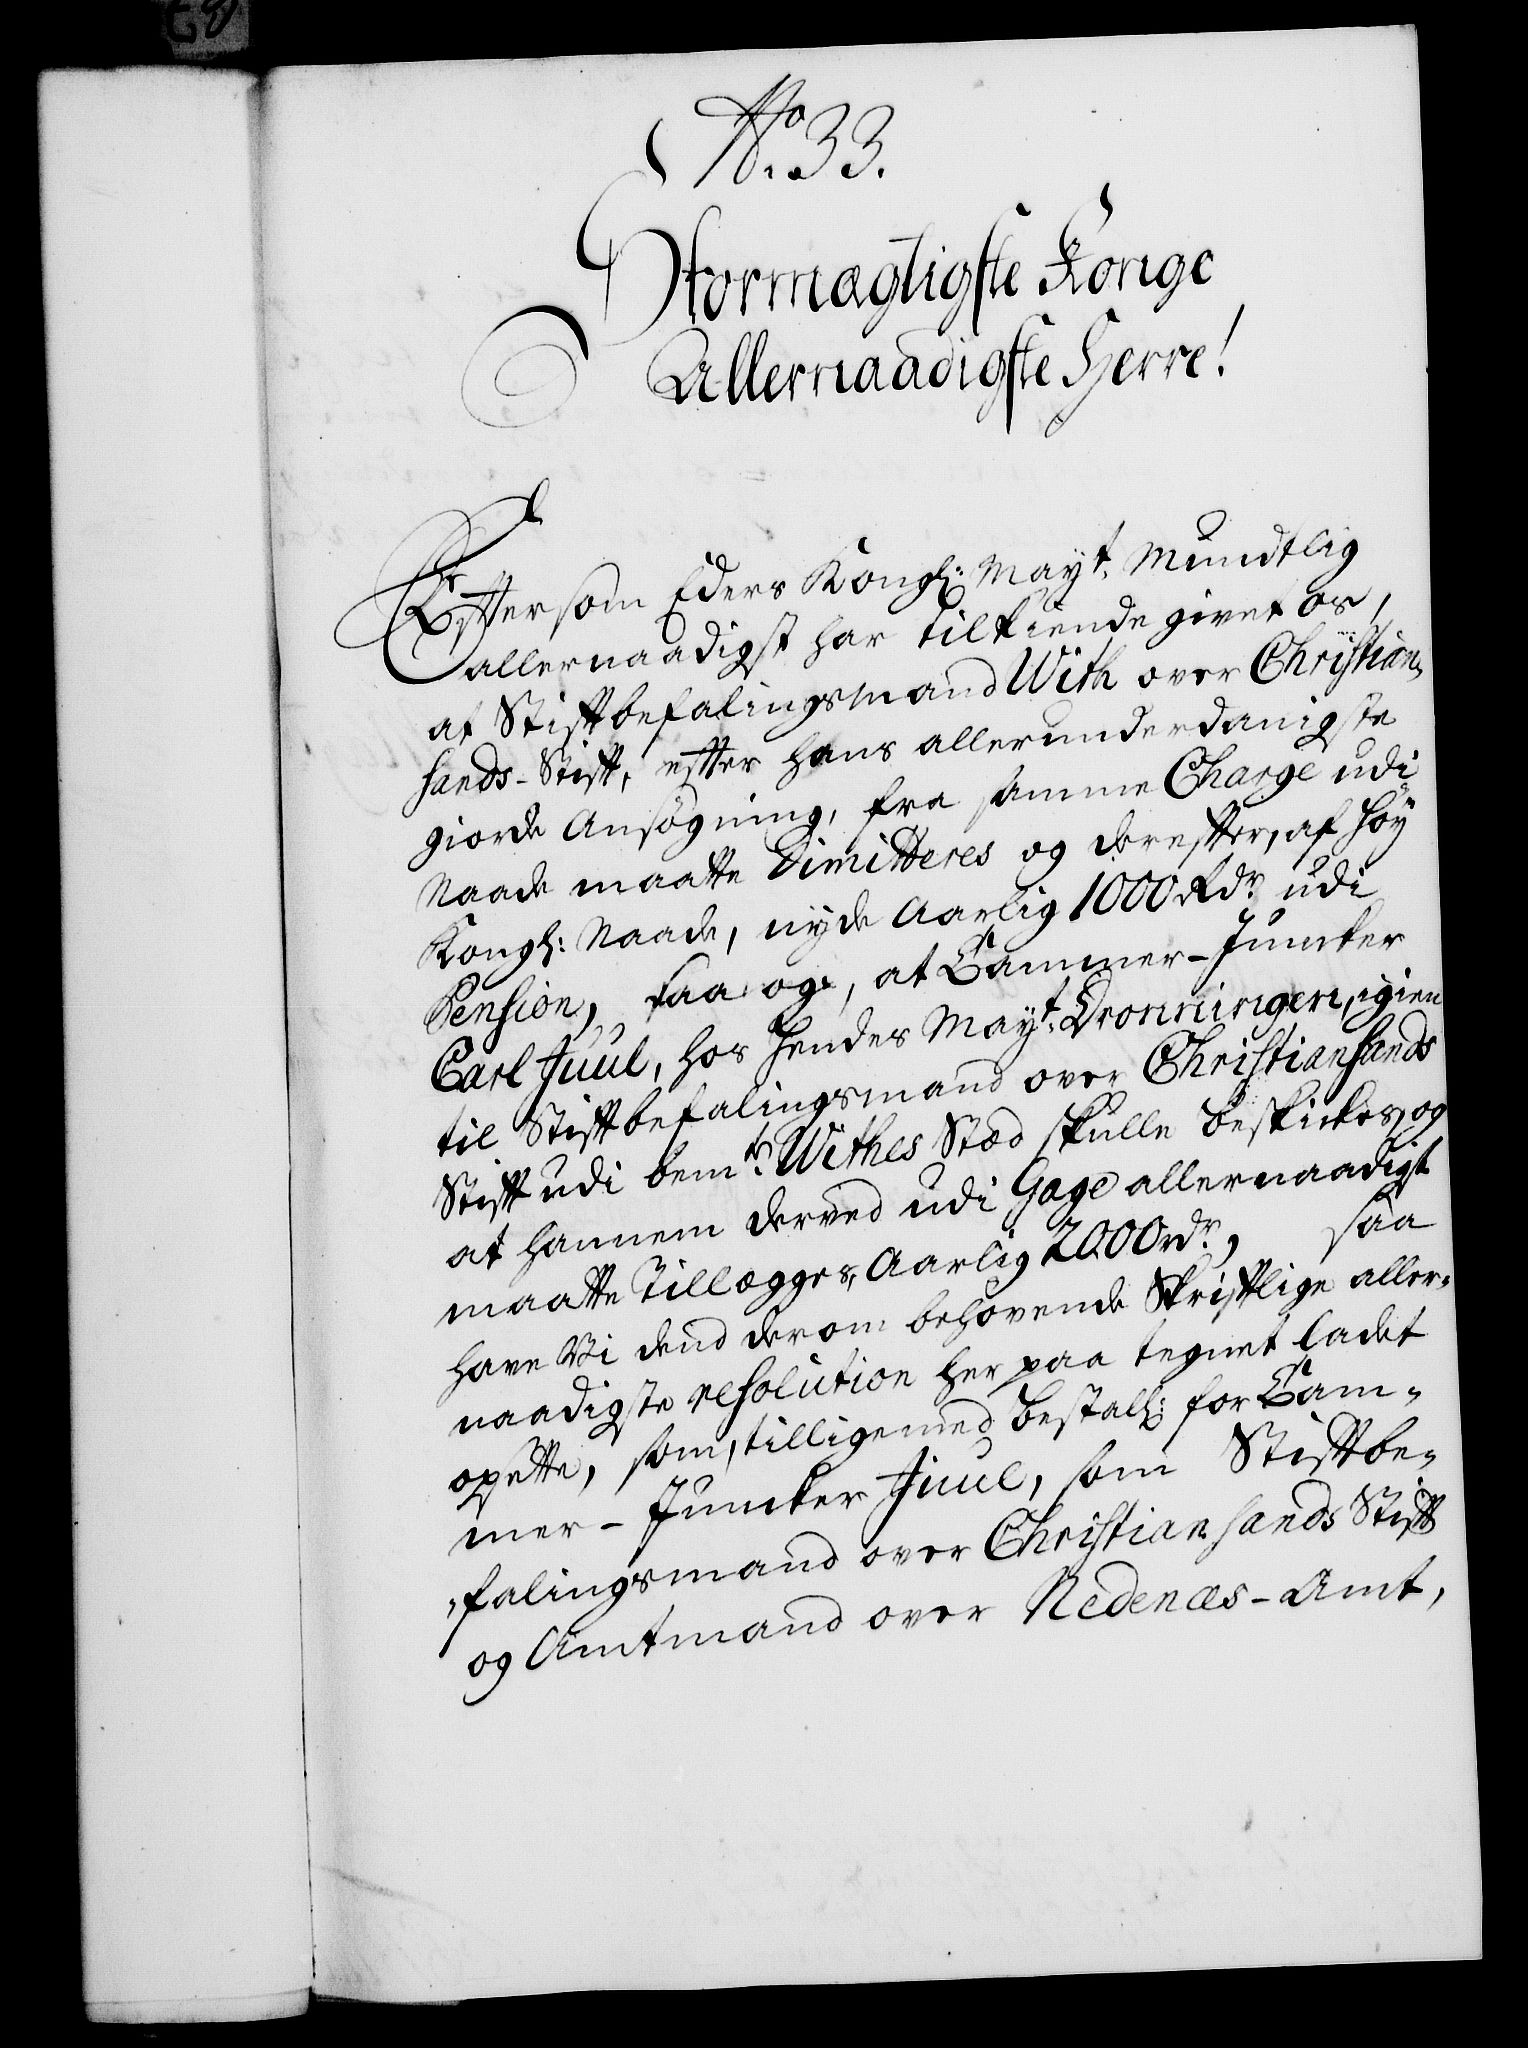 No. 33.
Stormægtigste Konge
Allernaadigste Herre!
Eftersom Eders Kongl: Mayt. Mundtlig
allernaadigst har tilkiende givet os,
at Stiftbefalingsmand With over Christian-
sands-Stift, efter hans allerunderdanigste
giorde Ansøgning, fra samme Charge udi
Naade maatte dimitteres og derefter, af Høy
Kongl: Naade, nyde Aarlig 1000 Rdr. udi
Pension, saa og, at Cammer-Juncker
Carl Juul, hos Hendes Mayt. Dronningen, igien
til Stiftbefalingsmand over Christiansands
Stift udi bemte. Withes Stæd skulle beskickes, og
at hannem derved udi Gage allernaadigst
maatte Tillegges, Aarlig 2000 rdr., saa
have Vi dend derom behøvende Skriftlige aller-
naadigste resolution her paa tegnet ladet
opsette, som, tilligemed bestall: for Cam-
mer-Juncker Juul, som Stiftbe-
falingsmand over Christiansands Stift
og Amtmand over Nedenæs-Amt,